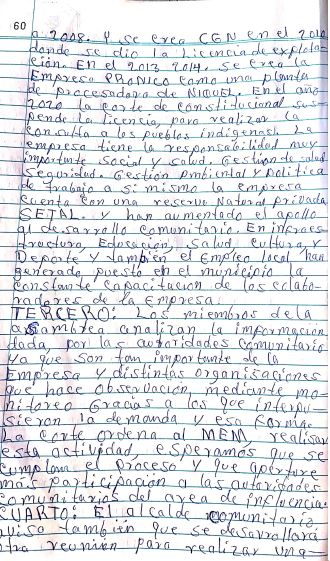 60
a 2008. Y se crea CGN en el 2010
donde se dio la Licencia de explota-
ción. En el 2013 2014. se crea la
Empresa PRONICO como una planta
de procesadora de NIQUEL. En el año
2020 la corte de constitucional sus-
pende la licencia, para realizar la
consulta a los pueblos indigenas. La
empresa tiene la responsabilidad muy
importante social y salud. Gestión de salud
seguridad. Gestión Ambiental y politica
de trabajo a si mismo la empresa
cuenta con una reserva Natural privada
SETAL. y han aumentado el apollo
al desarrollo comunitario. En infraes-
tructura, Educación, Salud, cultura, y
Deporte y también el Empleo local han
generado puesto en el municipio la
constante capacitacion de los colabo-
radores de la Empresa.
TERCERO: Los miembros de la
asamblea analizan la información
dada, por las autoridades comunitario
ya que son tan importante de la
Empresa y distintas organisaciones
que hace observación, mediante mo-
nitoreo Gracias a los que interpu-
sieron la demanda y esa forma
La corte ordena al MEM, realisar
esta actividad, esperamos que se
cumplan el proceso y que aperture
más participación a las autoridades
comunitarias del area de influencia.
CUARTO: El alcalde comunitario
avisa también que se desarrollará
otra reunión para realizar una-